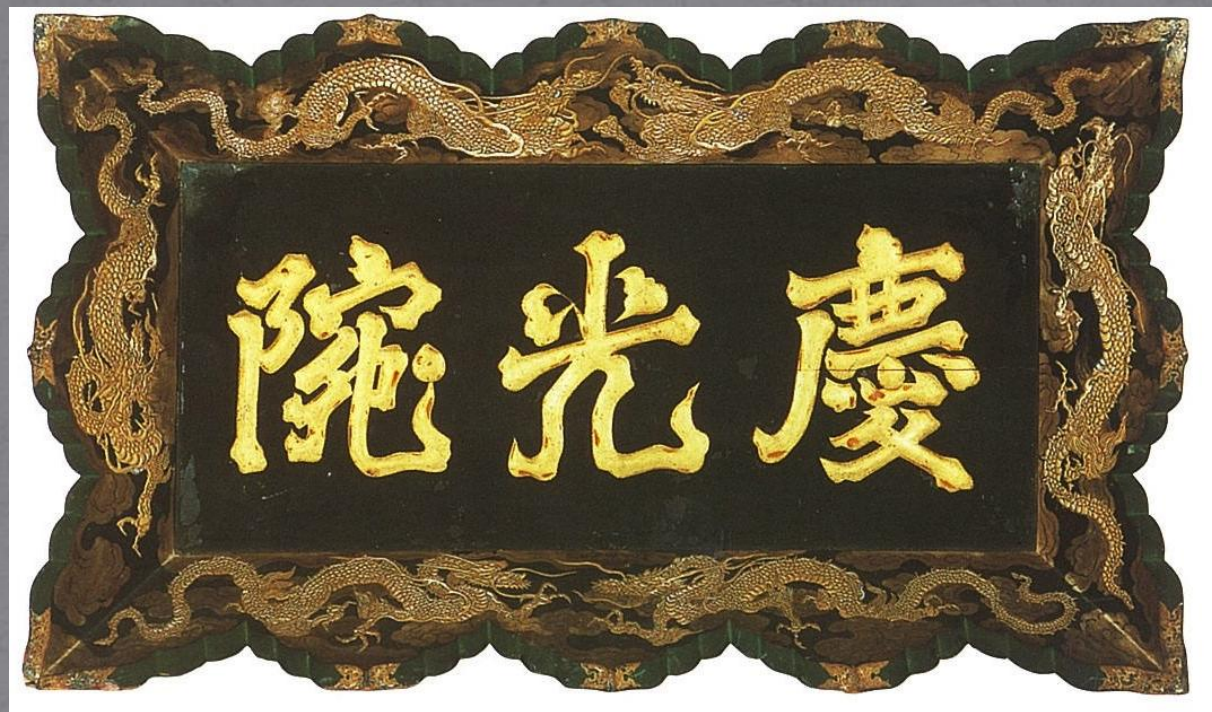 慶光院